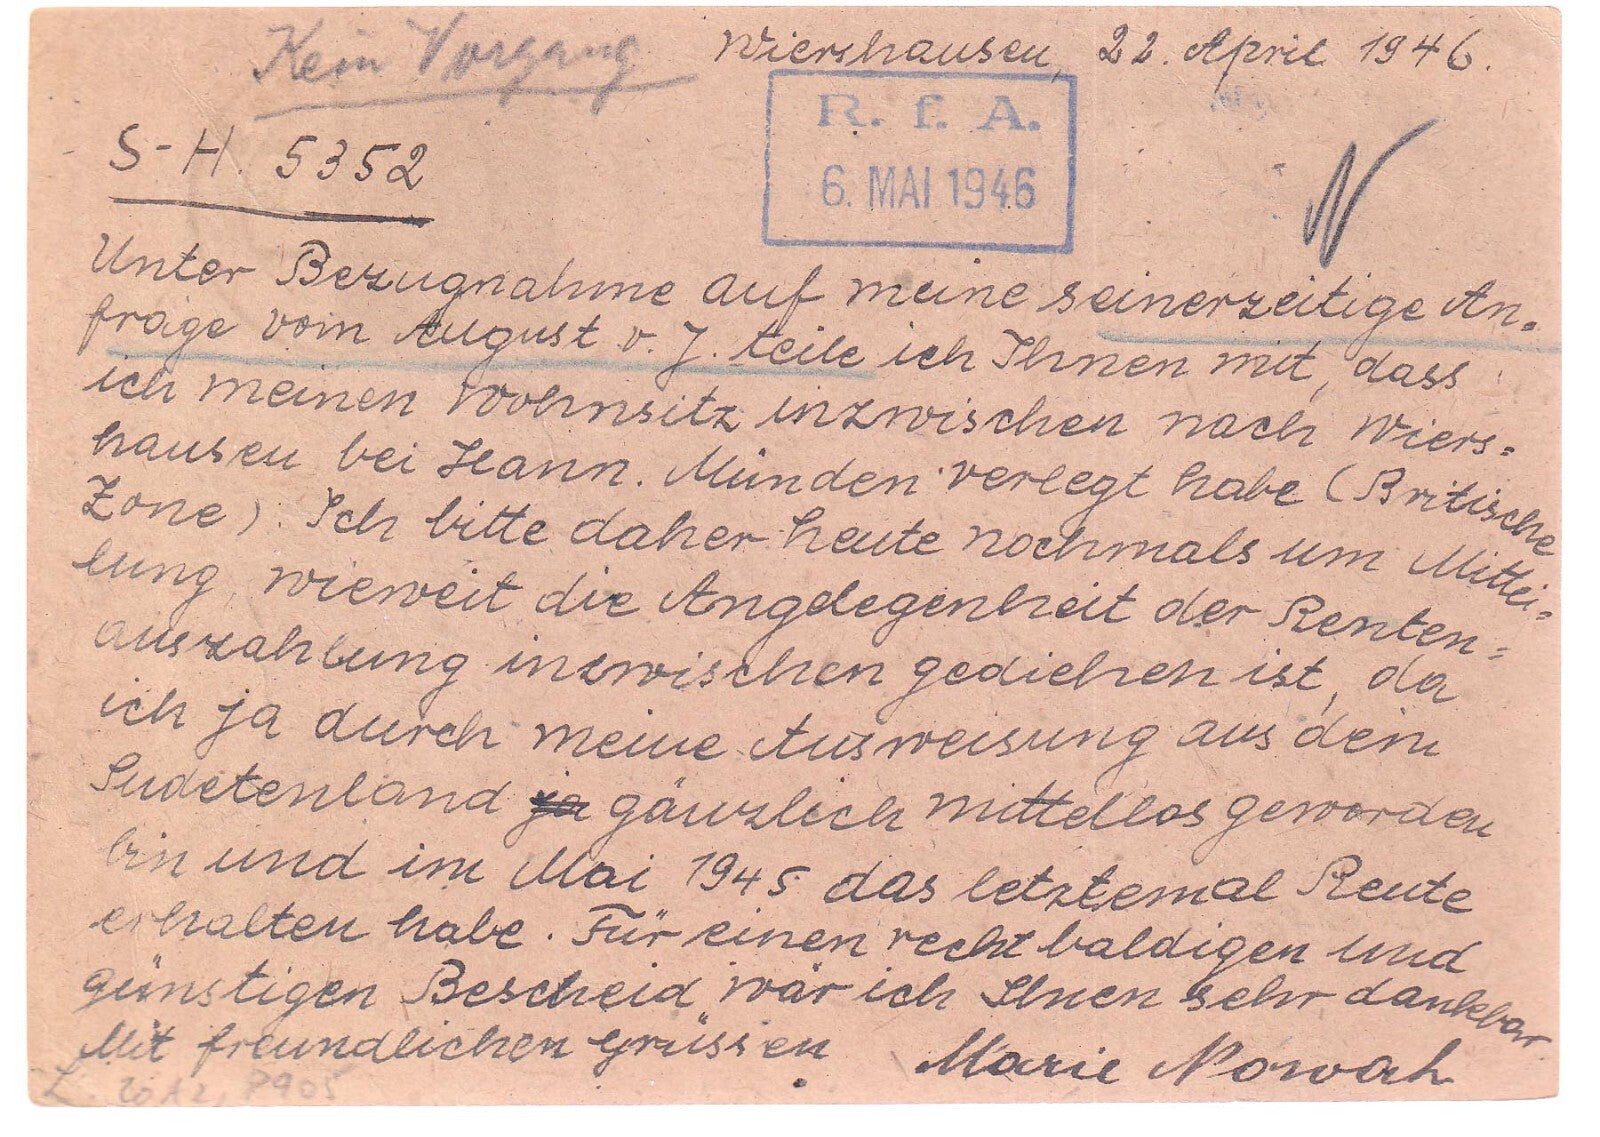 Kein Vorgang
Wiershausen, 22. April 1946.
R. f. A.
6. MAI 1946
S-H. 5352
N
Unter Bezugnahme auf meine seinerzeitige An=
frage vom August v. J. teile ich Ihnen mit, dass
ich meinen Wohnsitz inzwischen nach Wiers=
hausen bei Hann. Münden verlegt habe (Britische
Zone). Ich bitte daher heute nochmals um Mittei=
lung, wieweit die Angelegenheit der Renten=
auszahlung inzwischen gediehen ist, da
ich ja durch meine Ausweisung aus dem
Sudetenland ja gänzlich mittellos geworden
bin und im Mai 1945 das letztemal Rente
erhalten habe. Für einen recht baldigen und
günstigen Bescheid wär ich Ihnen sehr dankbar.
Mit freundlichen Grüssen Marie Nowak